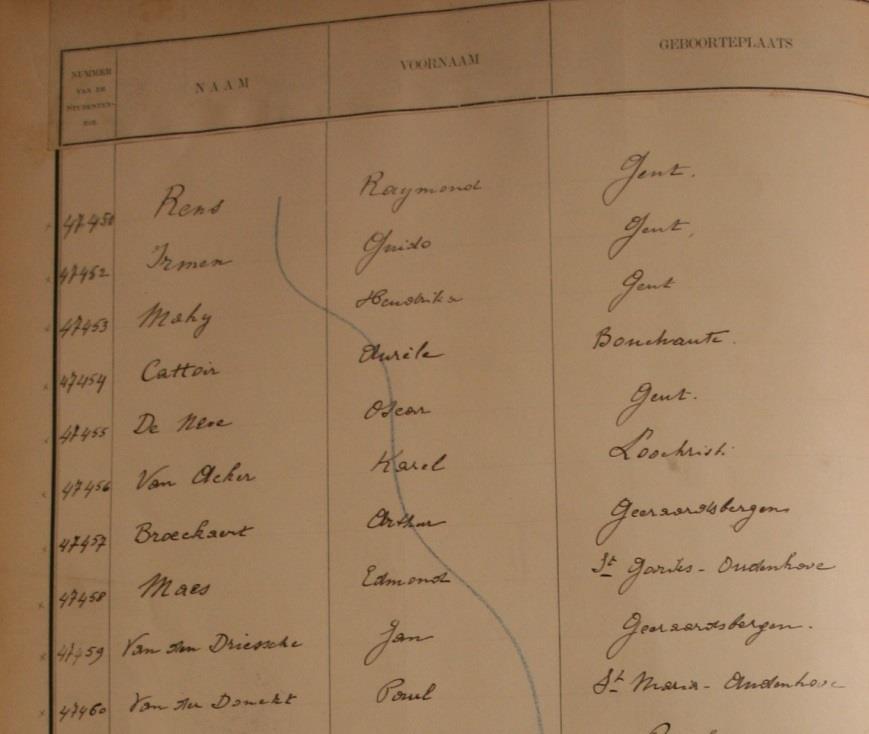 NUMMER VAN DE STUDENTEN- NAAM VOORNAAM GEBOORTEPLAATS
47450 Rens Raymond Gent.
47452 Irmen Guido Gent,
47453 Mahy Hendrika Gent
47454 Cattoir Aurèle Bouchaute.
47455 De Neve Oscar Gent.
47456 Van Acker Karel Loochristi.
47457 Broeckaert Arthur Geeraardsbergen
47458 Maes Edmond St Goriks-Oudenhove
47459 Van den Driessche Jan Geeraardsbergen.
47460 Van der Donckt Paul St Maria-Oudenhove